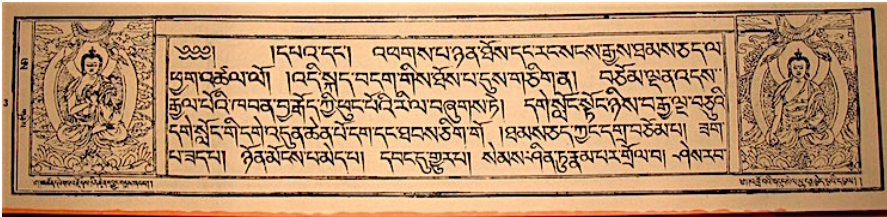 ༄༅༅། །དཔའ་དང༌། འཕགས་པ་ཉན་ཐོས་དང་རང་སངས་རྒྱས་ཐམས་ཅད་ལ་
ཕྱག་འཚལ་ལོ། །འདི་སྐད་བདག་གིས་ཐོས་པ་དུས་གཅིག་ན། བཅོམ་ལྡན་འདས་
རྒྱལ་པོའི་ཁབ་ན་བྱ་རྒོད་ཀྱི་ཕུང་པོའི་རི་ལ་བཞུགས་ཏེ། དགེ་སློང་སྟོང་ཉིས་བརྒྱ་ལྔ་བཅུའི་
དགེ་སློང་གི་དགེ་འདུན་ཆེན་པོ་དག་དང་ཐབས་ཅིག་གོ །ཐམས་ཅད་ཀྱང་དགྲ་བཅོམ་པ། ཟག་
པ་ཟད་པ། ཉོན་མོངས་པ་མེད་པ། དབང་དུ་གྱུར་པ། སེམས་ཤིན་ཏུ་རྣམ་པར་གྲོལ་བ། ཤེས་རབ་